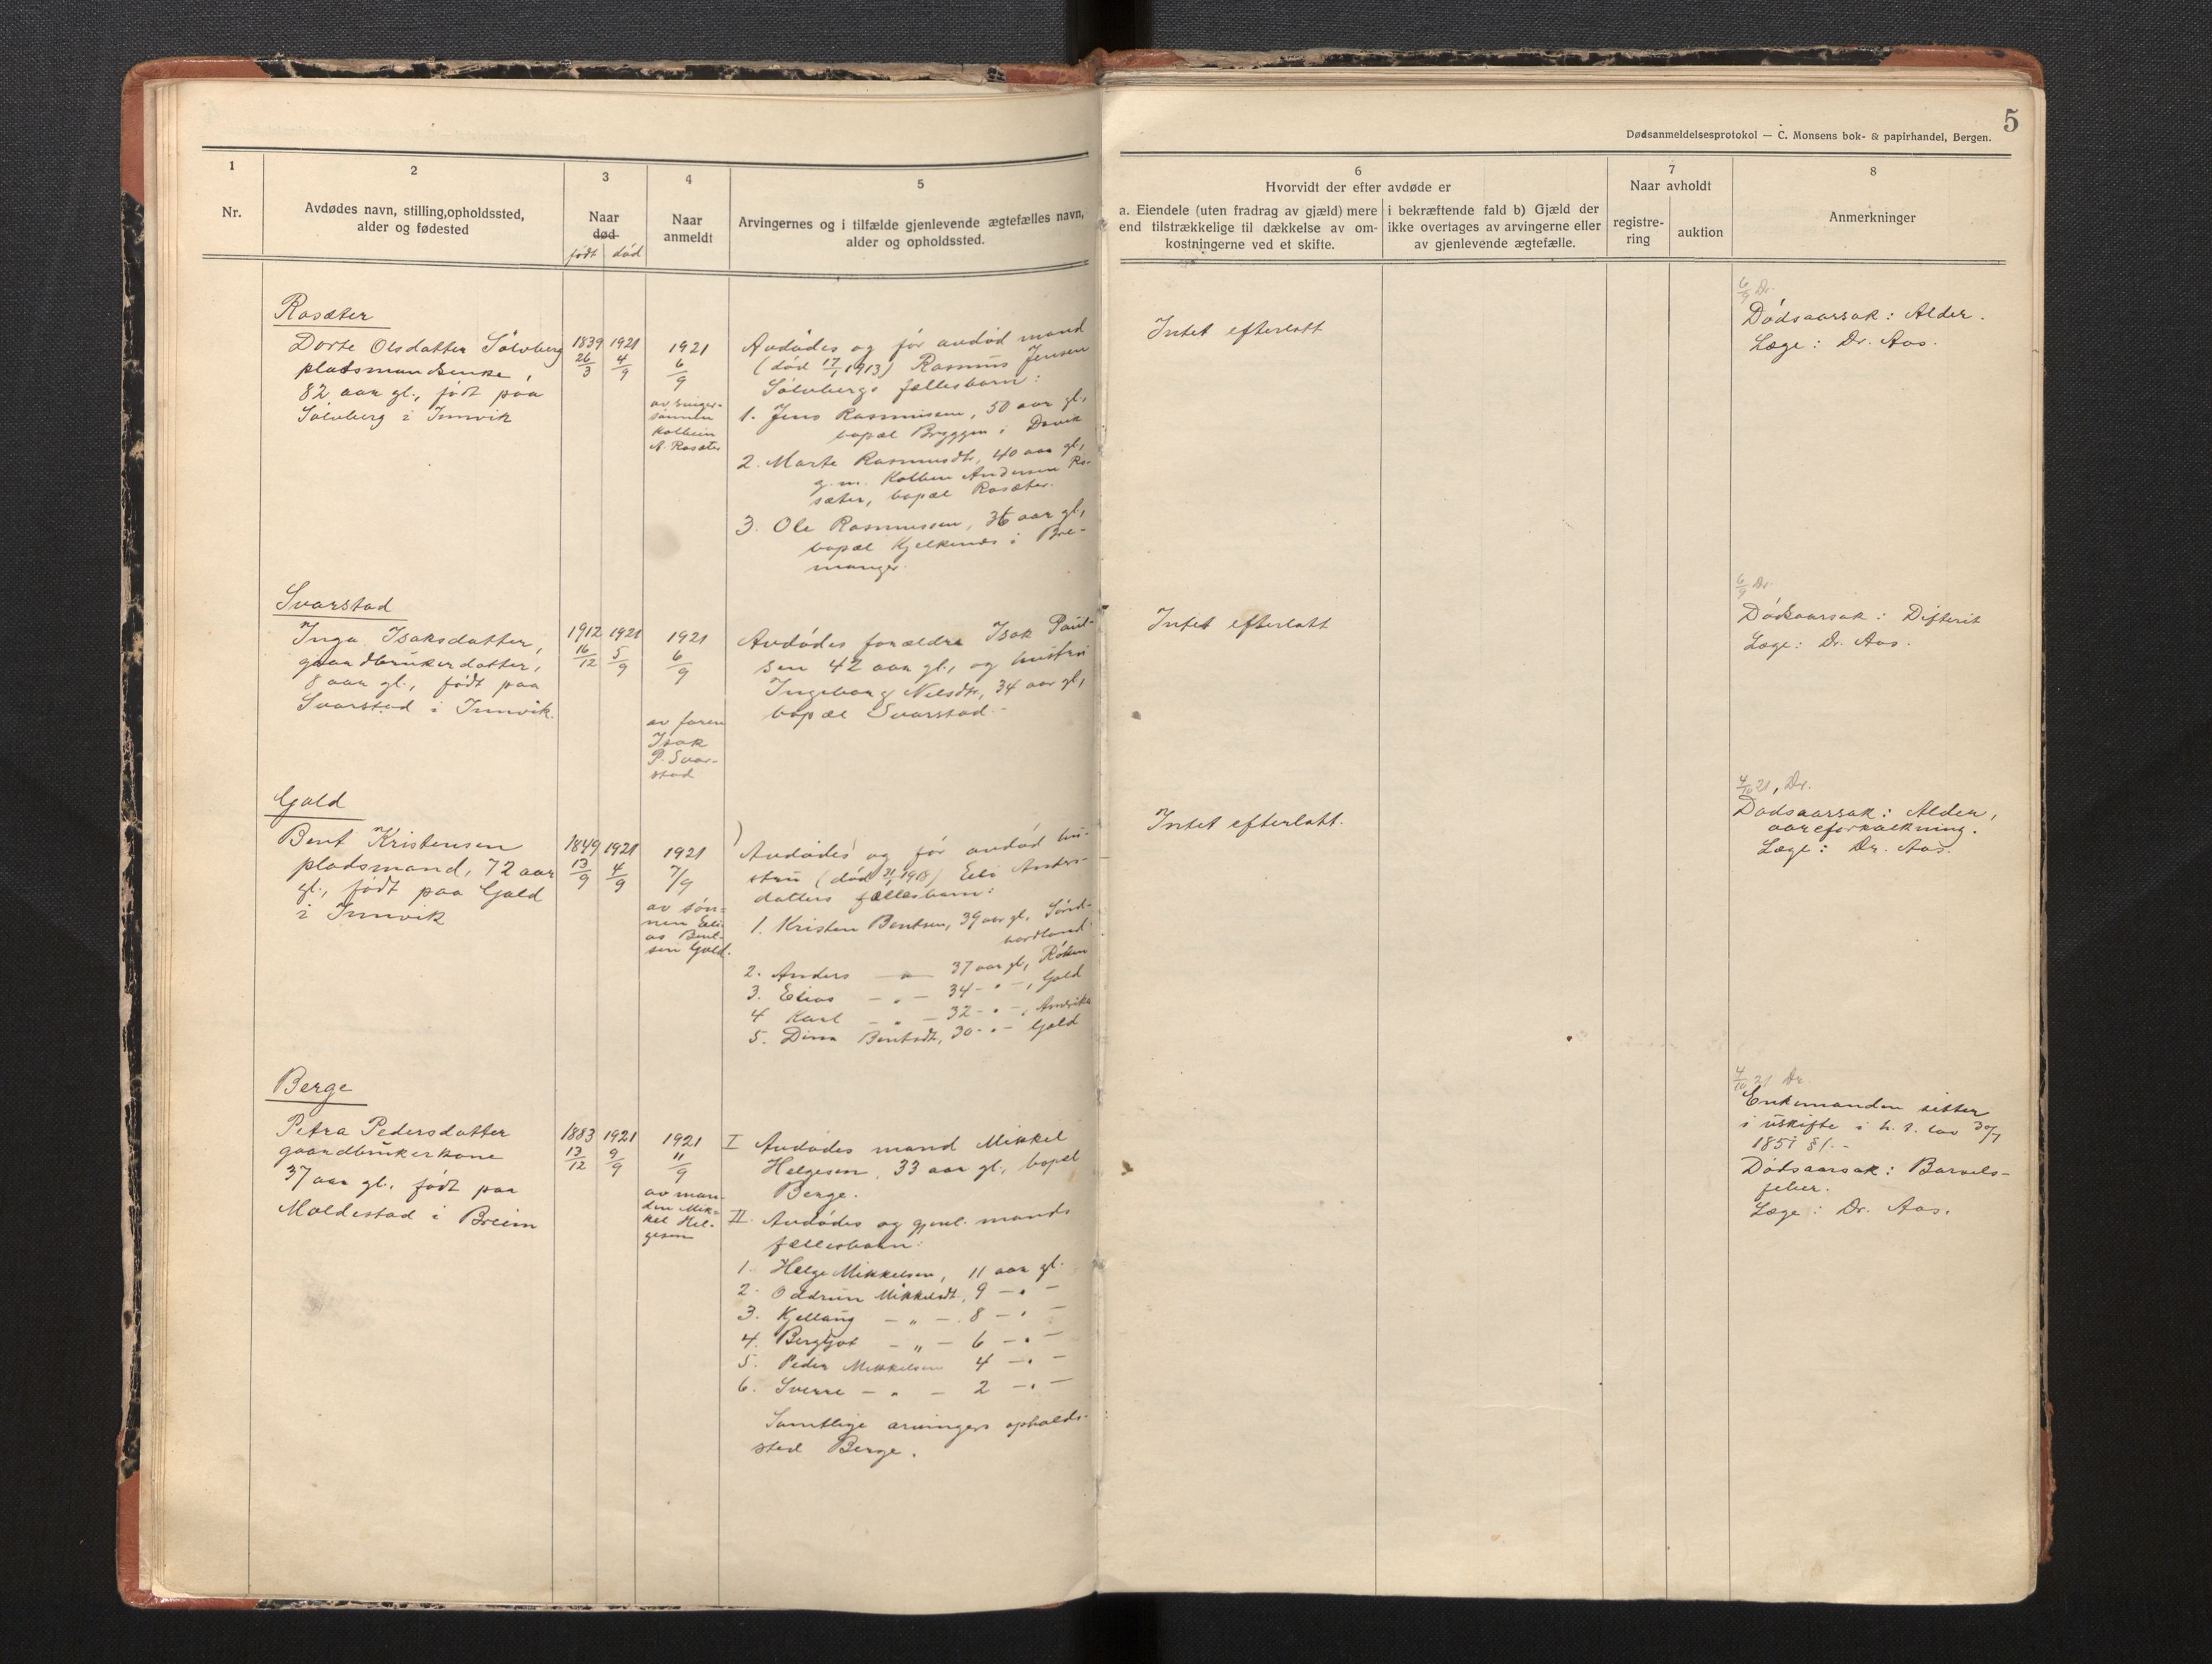 5
Dødsanmeldelsesprotokol — C. Monsens bok- & papirhandel, Bergen.
1
Nr.
2
Avdødes navn, stilling, opholdssted,
alder og fødested
3
Naar
død
født død
4
Naar
anmeldt
5
Arvingernes og i tilfælde gjenlevende ægtefælles navn,
alder og opholdssted.
6
Hvorvidt der efter avdøde er
a. Eiendele (uten fradrag av gjæld) mere
end tilstrækkelige til dækkelse av om-
kostningerne ved et skifte.
i bekræftende fald b) Gjæld der
ikke overtages av arvingerne eller
av gjenlevende ægtefælle.
7
Naar avholdt
registre-
ring
auktion
8
Anmerkninger
Rosæter
Dorte Olsdatter Sølvberg
pladsmandsenke,
82 aar gl., født paa
Sølvberg i Innvik
1839
26/3
1921
4/9
1921
6/9
av sviger-
sønnen
Kolbein
A. Rosæter
Avdødes og før avdød mand
(død 17/1 1913) Rasmus Jensen
Sølvbergs fællesbarn:
1. Jens Rasmussen, 50 aar gl,
bopæl Bryggen i Davik
2. Marte Rasmusdtr, 40 aar gl,
g. m. Kolbein Andersen Ro-
sæter, bopæl Rosæter.
3. Ole Rasmussen, 36 aar gl,
bopæl Kjelkenes i Bre-
manger.
Intet efterlatt
6/9 Dr.
Dødsaarsak: Alder.
Læge: Dr. Aas.
Svarstad
Inga Isaksdatter,
gaardbrukerdatter,
8 aar gl., født paa
Svarstad i Innvik.
1912
16/12
1921
5/9
1921
6/9
av faren
Isak
P. Svar-
stad
Avdødes forældre Isak Paul-
sen 42 aar gl., og hustru
Ingeborg Nilsdtr, 34 aar gl,
bopæl Svarstad.
Intet efterlatt
6/9 Dr.
Dødsaarsak: Difterit
Læge: Dr. Aas.
Gald
Bent Kristensen
pladsmand, 72 aar
gl., født paa Gald
i Innvik
1849
13/9
1921
4/9
1921
7/9
av søn-
nen Eli-
as Bent-
sen Gald.
Avdødes og før avdød hu-
stru (død 1918) Eli Anders-
datters fællesbarn:
1. Kristen Bentsen, 39 aar gl, Sønd-
hordland.
2. Anders — " — 37 aar gl, Røken
3. Elias — " — 34 - " -, Gald
4 Karl — " — 32 - " -, Amerika
5. Dina Bentsdtr, 30 - " - Gald
Intet efterlatt.
4/10 21, Dr.
Dødsaarsak: Alder,
aareforkalkning.
Læge: Dr. Aas.
Berge
Petra Pedersdatter
gaardbrukerkone
37 aar gl., født paa
Moldestad i Breim
1883
13/12
1921
9/9
1921
11/9
av man-
den Mik-
kel Hel-
gesen
I Avdødes mand Mikkel
Helgesen, 33 aar gl, bopæl
Berge.
II. Avdødes og gjenl. mands
fællesbarn:
1. Helge Mikkelsen, 11 aar gl.
2. Oddrun Mikkelsdt, 9 — " —
3. Kjellaug — " — 8 — " —
4. Bergljot — " — 6 — " —
5. Peder Mikkelsen 4 — " —
6. Sverre — " — 2 — " —
Samtlige arvingers opholds-
sted Berge.
4/10 21 Dr.
Enkemanden sitter
i uskifte i h. t. lov 30/7
1851 § 1. -
Dødsaarsak: Barsels-
feber.
Læge: Dr. Aas.